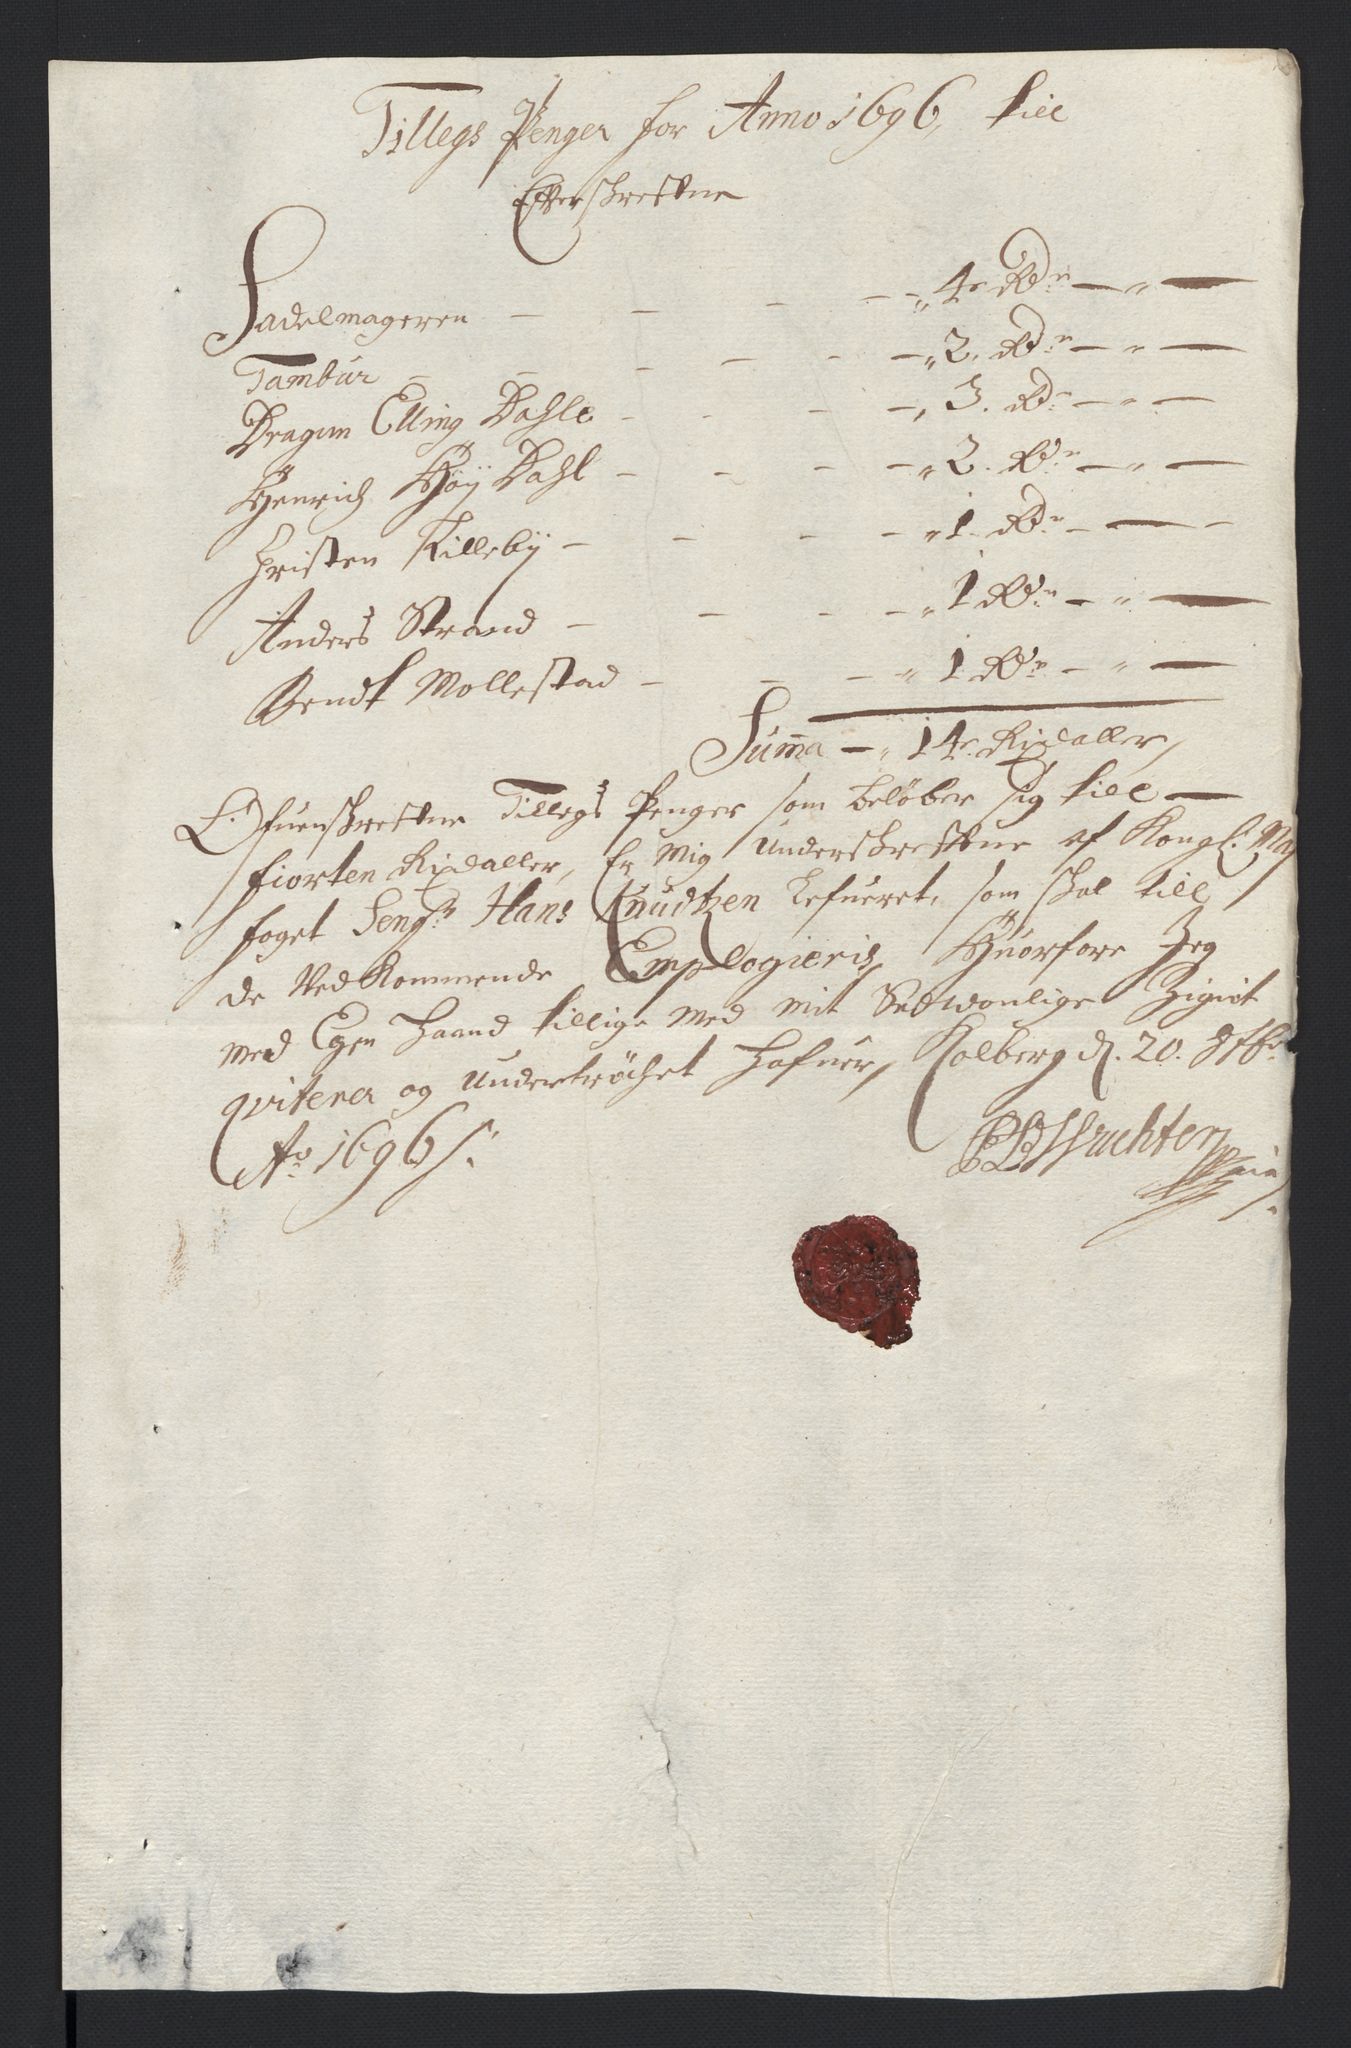 Tillegs Penger for Anno 1696, till
Efterskrefne
Sadelmageren — — — — „ 4 Rdr — „ —
Tambur — — — — — „ 2. Rdr — „ —
Dragun Elling Dahle — — — — „ 3. Rdr — „ —
Henrich Høÿ Dahl — — — — „ 2. Rdr — „ —
Christen Killebÿ — — — — „ 1. Rdr — —
Anders Strand — — — — „ 1 Rdr — „ —
Bendt Mollestad — — — „ 1 Rdr — „ —
Summa — „ 14 Rixdaller,
Ofuenskrefne Tillegs Penger som beløber sig till —
fiorten Rixdaller, Er Mig Underskrefne af Kongl: May
foget Sengr Hans Knudtzen Lefueret, som skal till
de Ved Kommende Emplogieris, Huorfore Jeg
med Egen Haand tillige med mit Sedwonlige Zignet
qviterer og undertrøchet hafuer, Kolberg d. 20. 8tbr
Ao 1696